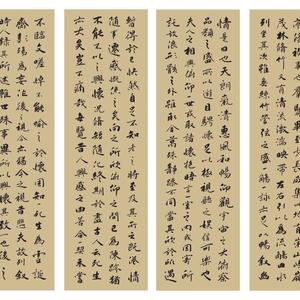 亭脩禊事也羣賢畢至少長咸集此地有崇山峻領
茂林脩竹又有清流激湍映帶左右引以為流觴曲水
列坐其次雖無絲竹管弦之盛一觴一詠亦足以暢敘幽
情是日也天朗氣清惠風和暢仰觀宇宙之大俯察
品類之盛所以遊目騁懷足以極視聽之娛信可樂也
夫人之相與俯仰一世或取諸懷抱悟言一室之內或因寄所
託放浪形骸之外雖取舍萬殊靜躁不同當其欣於所遇
暫得於己快然自足不知老之將至及其所之既倦情
隨事遷感慨係之矣向之所欣俛仰之間已為陳跡猶
不能不以之興懷況脩短隨化終期於盡古人云死生
亦大矣豈不痛哉每覽昔人興感之由若合一契未嘗
不臨文嗟悼不能喻之於懷固知一死生為虛誕
齊彭殤為妄作後之視今亦猶今之視昔悲夫故列敘
時人錄其所述雖世殊事異所以興懷其致一也後之